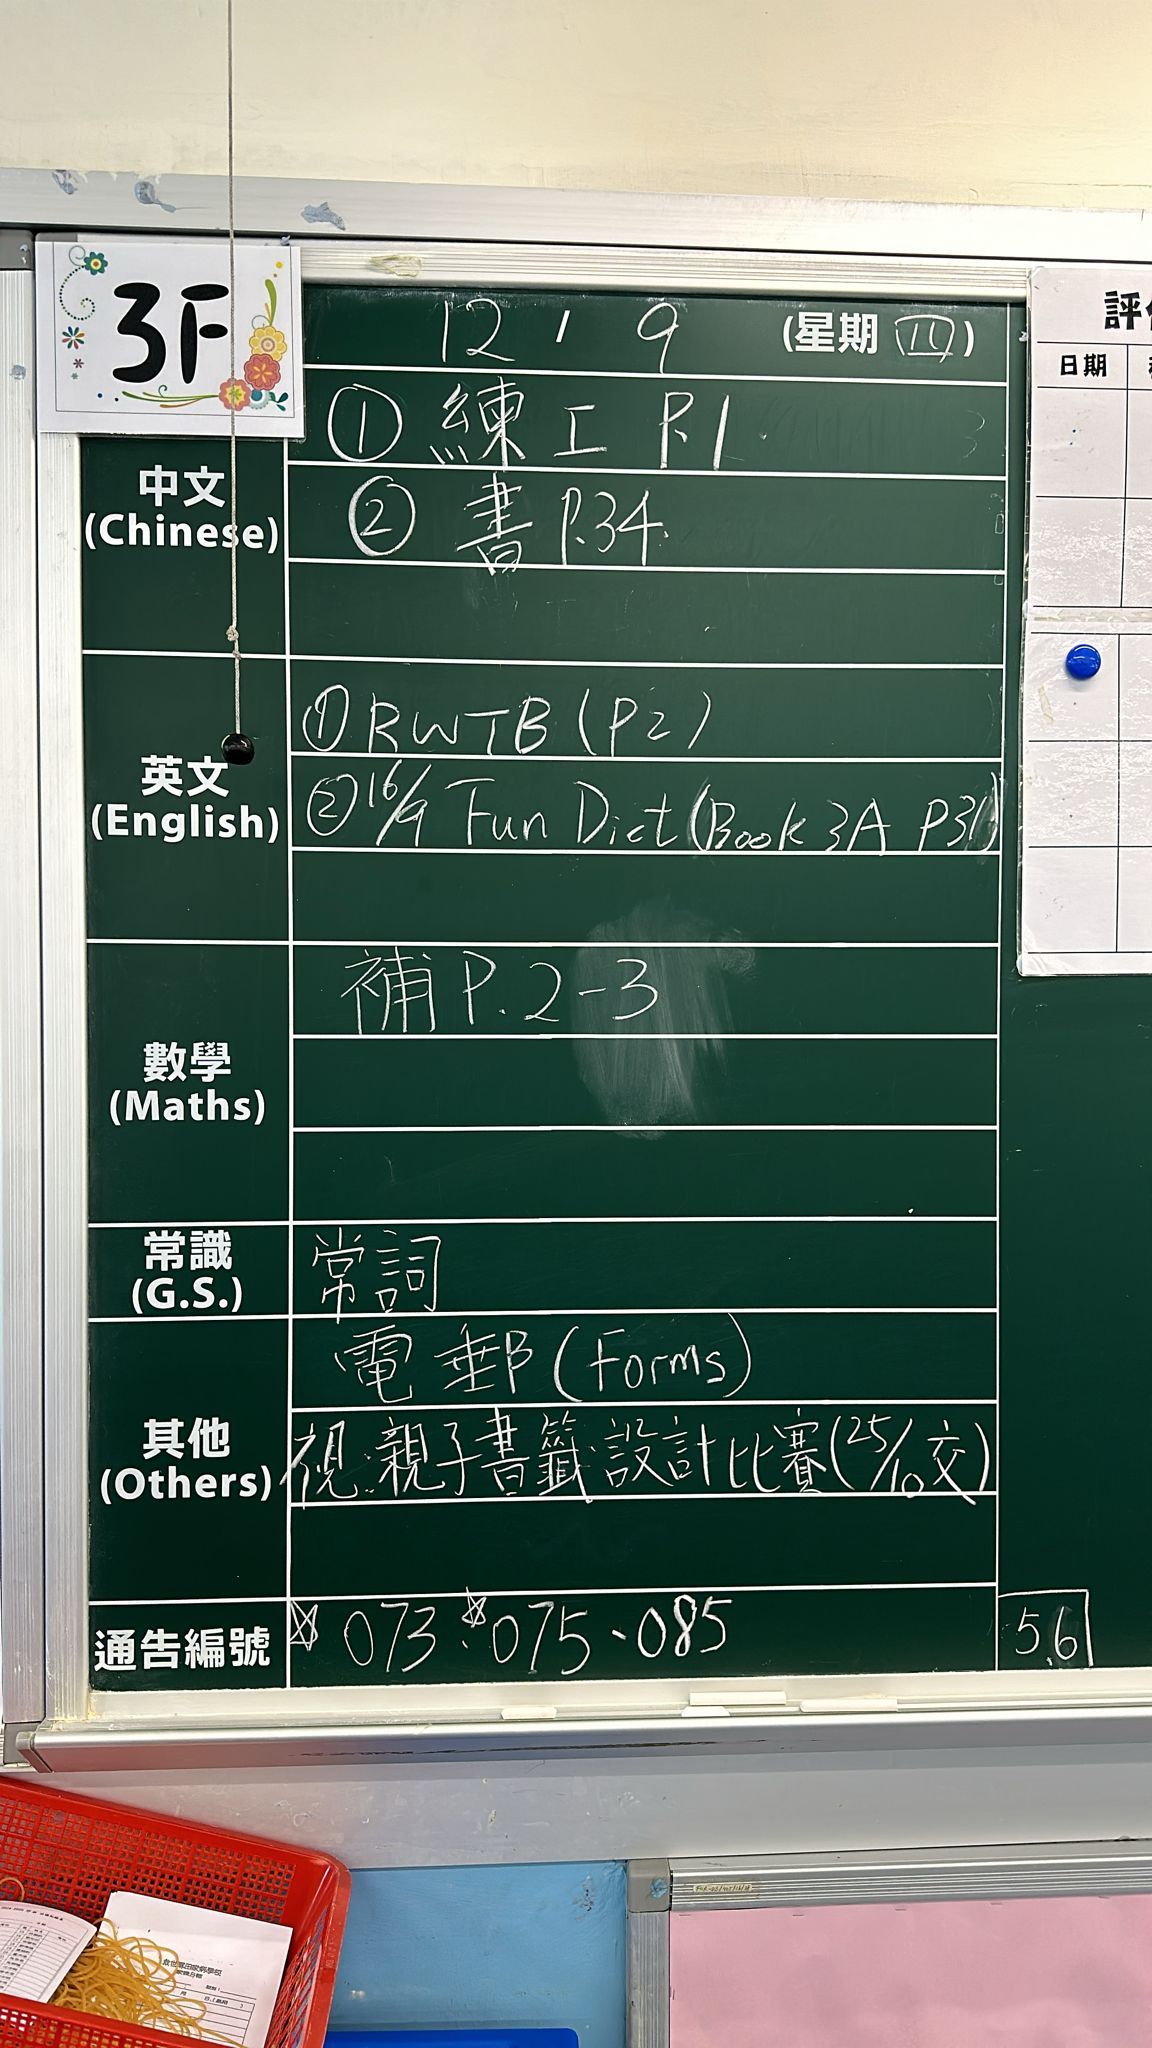 3F
12 , 9 (星期 四)
中文
(Chinese)
① 練工 P.1.
② 書 P.34.
英文
(English)
① RWTB (P2)
② 16/9 Fun Dict (Book 3A P31)
數學
(Maths)
補 P.2-3
常識
(G.S.)
常詞
其他
(Others)
電郵 (Forms)
視:親子書籤設計比賽(25/10交)
通告編號
☆ 073、☆075、085
5.6
日期